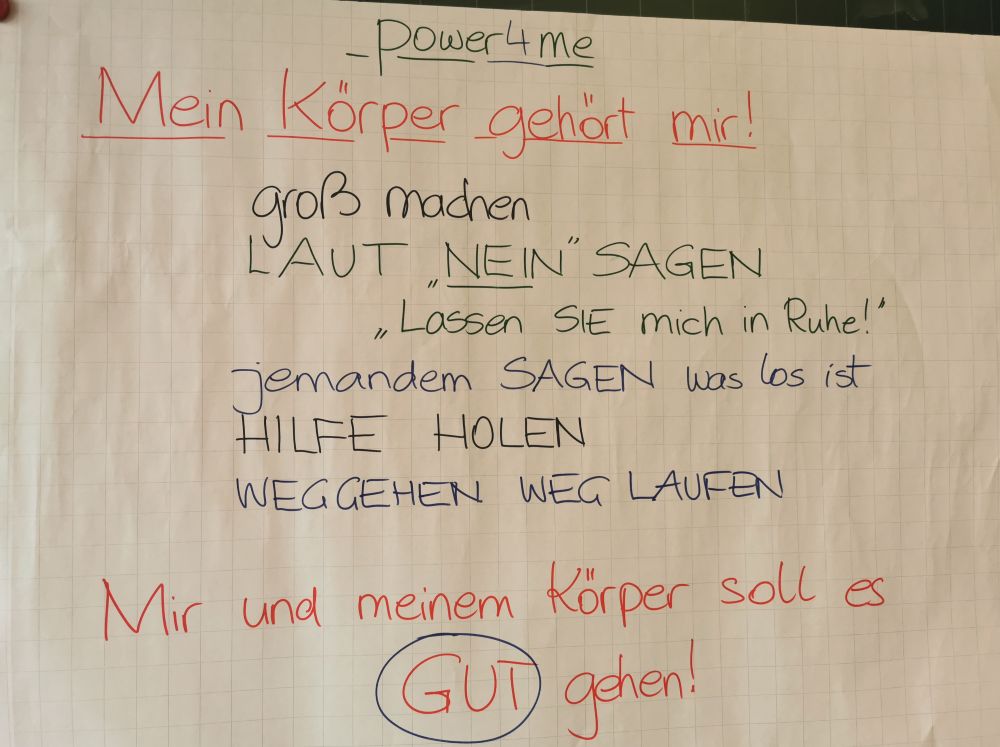 power4me
Mein Körper gehört mir!
groß machen
LAUT „NEIN" SAGEN
„Lassen SIE mich in Ruhe!"
jemandem SAGEN was los ist
HILFE HOLEN
WEGGEHEN WEG LAUFEN
Mir und meinem Körper soll es
GUT gehen!